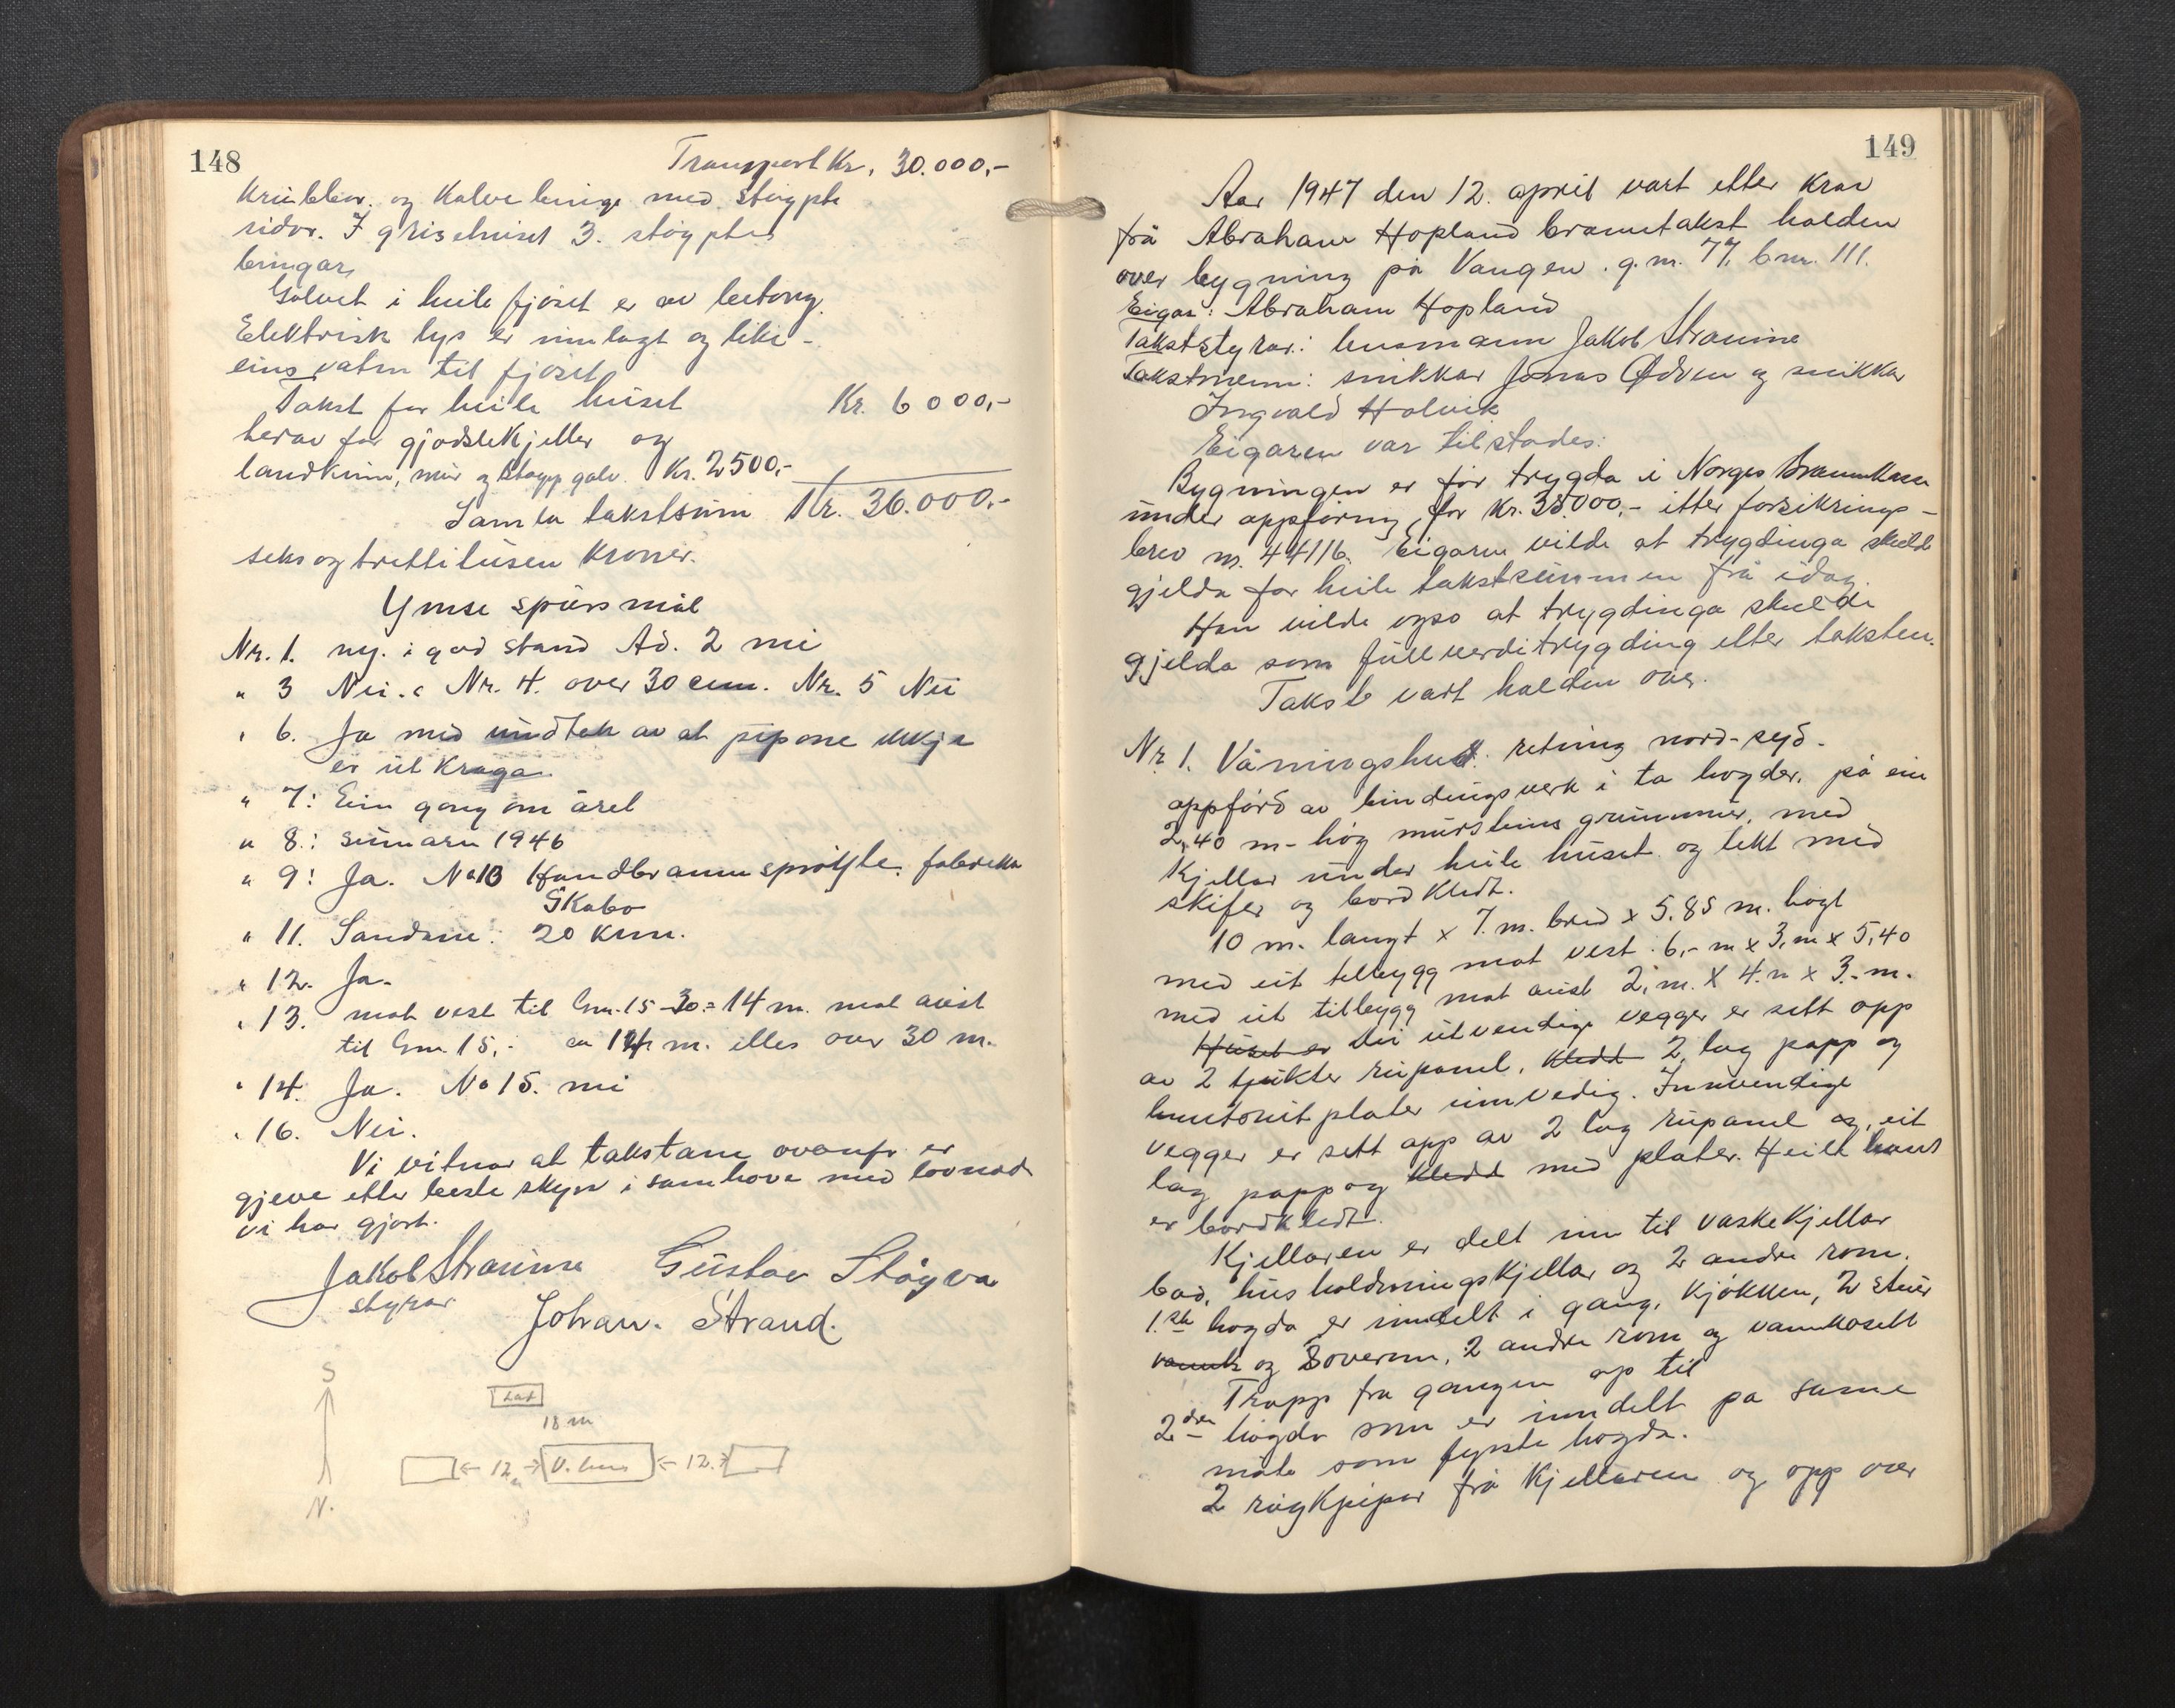 148
Transport Kr. 30.000,-
Krübbor. og Kalve binge med støypte
sidor. I grisehuset 3. støypte
bingar,
Golvet i heile fjøset er av betong.
Elektrisk lys er innlagt og like-
eins vatn til fjøset
Takst for heile huset Kr. 6000,-
herav for gjødslekjeller og
landkinn, mur og støyp golv. Kr. 2500,-
Samla takstsum Kr. 36.000.-
seks og trettitusen Kroner.
Ymse spursmål
Nr. 1. ny. i god stand Ad. 2 nei
" 3 Nei. Nr. 4. over 30 cm. Nr. 5 Nei
" 6. Ja med undtak av at pipone ikkje
er utkraga
" 7: Ein gong om året
" 8: sumaren 1946
" 9: Ja. No 10 Handbrannsprøyte. fabrikk
Skabo
" 11. Sandane: 20 km.
" 12. Ja.
" 13. mot vest til bnr. 15-30 = 14 m. mot aust
til bnr. 15,- ca 14 m. elles over 30 m.
" 14. Ja. No 15. nei
" 16. Nei.
Vi vitnar at takstane ovanfor er
gjeve etter beste skyn i samhøve med lovnad
vi har gjort.
Jakob Straume Gustav Støyva
styrar Johan. Strand.
S
18 m
← 12 m → V. hus ← 12. →
N.
149
Aar 1947 den 12. april vart etter krav
frå Abraham Hopland branntakst halden
over bygning på Vangen. g.nr. 77, bnr. 111.
Eigar: Abraham Hopland
Takststyrar: Jakob Straume
Takstmenn: snikkar Jonas Ødven og snikkar
Ingvald Holvik
Eigaren var tilstades:
Bygningen er før trygda i Norges Brannkasse
under oppføring, for Kr. 38.000,- etter forsikrings-
brev nr. 44116. Eigaren vilde at trygdinga skulde
gjelda for heile takstsummen frå idag.
Han vilde også at trygdinga skulde
gjelda som fullverditrygding etter taksten.
Takst vart halden over.
Nr 1. Våningshus. retning nord-syd.
oppførd av bindingsverk i to høgder, på ein
2,40 m- høg mursteins grunnmur, med
Kjellar under heile huset og tekt med
skifer og bordkledt.
10 m. langt x 7. m. breid x 5.85 m. høgt
med eit tilbygg mot vest: 6,- m x 3, m x 5,40
med eit tilbygg mot aust 2, m. X 4. m x 3.- m.
Huset er Dei utvendige vegger er sett opp
av 2 tjukter rupanel, kledd 2, lag papp og
huntonit plater innvedig. Innvendige
vegger er sett opp av 2 lag rupanel og, eit
lag papp og kledd med plater. Heile huset
er bordkledt.
Kjellaren er delt inn til vaskekjellar
bad, husholdningskjellar og 2 andre rom.
1.ste høgda er inndelt i gang, kjøkken, 2 stuer
og Soverom, 2 andre rom og vannklosett
Trapp fra gangen op til
2den høgda som er inndelt på same
måte som fyrste høgda.
2 røykpipor frå Kjellaren og opp over